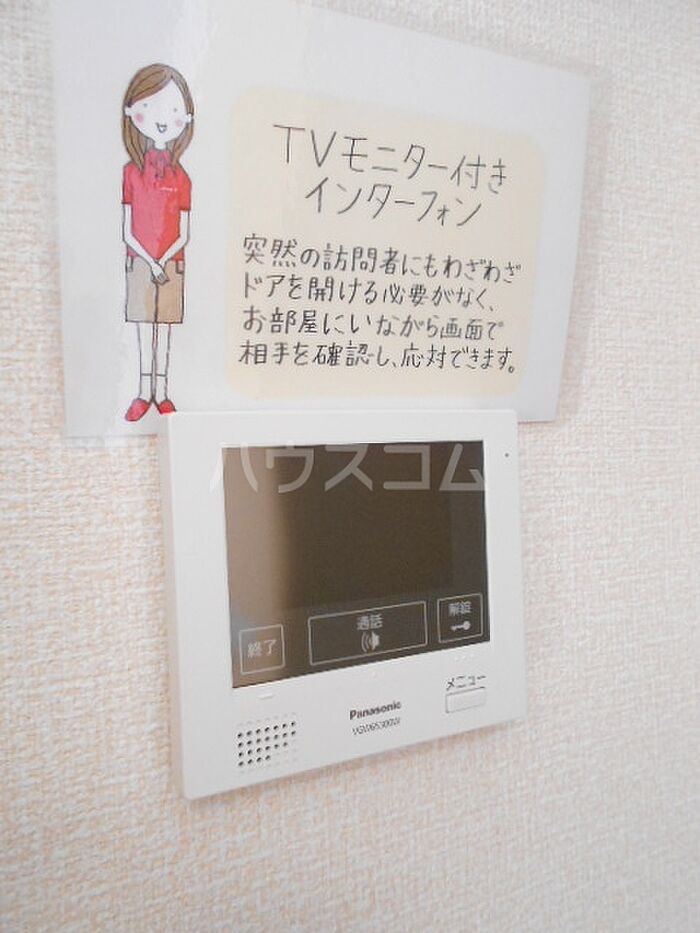 TVモニター付き
インターフォン
突然の訪問者にもわざわざ
ドアを開ける必要がなく、
お部屋にいながら画面で
相手を確認し、応対できます。
ハウスコム
終了
通話
解錠
メニュー
Panasonic